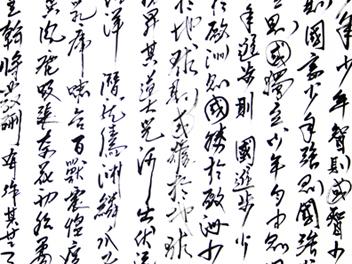 年少年智則國智少
則國富少年強則國強
立則國獨立少年自由則
年進步則國進步少
於欧洲則國勝於欧洲少
於地球則國雄於地球
昇其道大光河出伏流
洋潛龍騰淵鱗爪
乳虎嘯谷百獸震惶
風塵吸張奇花初胎矞
皇幹將發硎有作其芒